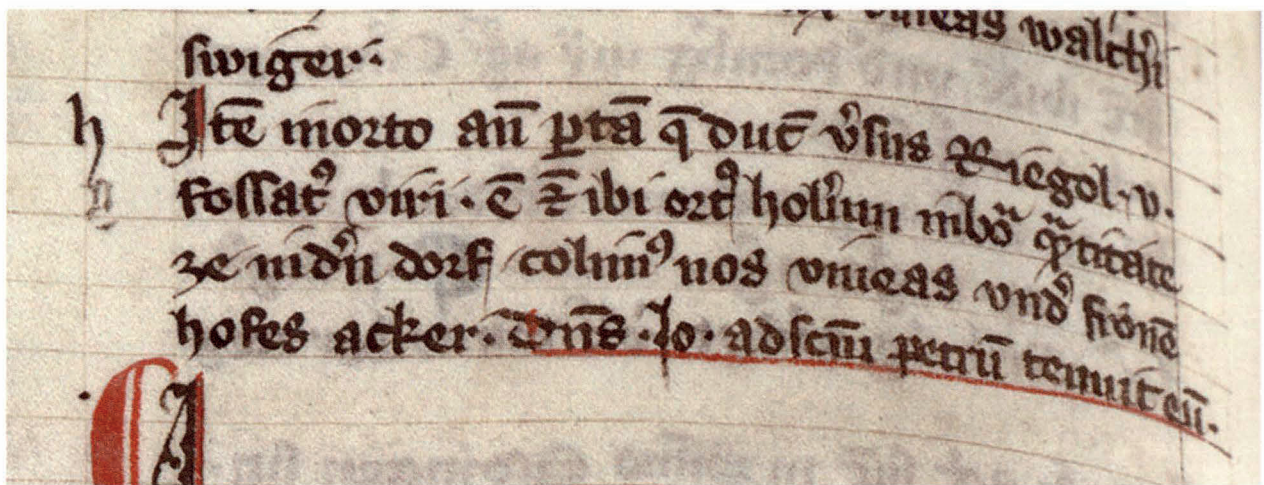 vineas walth'i
swiger.
h Itē in orto an̄ portā q̄ duc̄ v'sus Riegol. v.
fossat9 viri. ē ⁊ ibi ort9 hol'um in bo
ze nid'n dorf colim9 nos vineas vnd' frōnē
hofes acker. Dn̄s .Jo. ad scm̄ petrū tenuit eū.